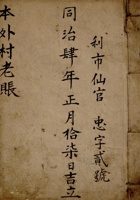 利市仙官 忠字貳號
同治肆年正月拾柒日吉立
本外村老賬